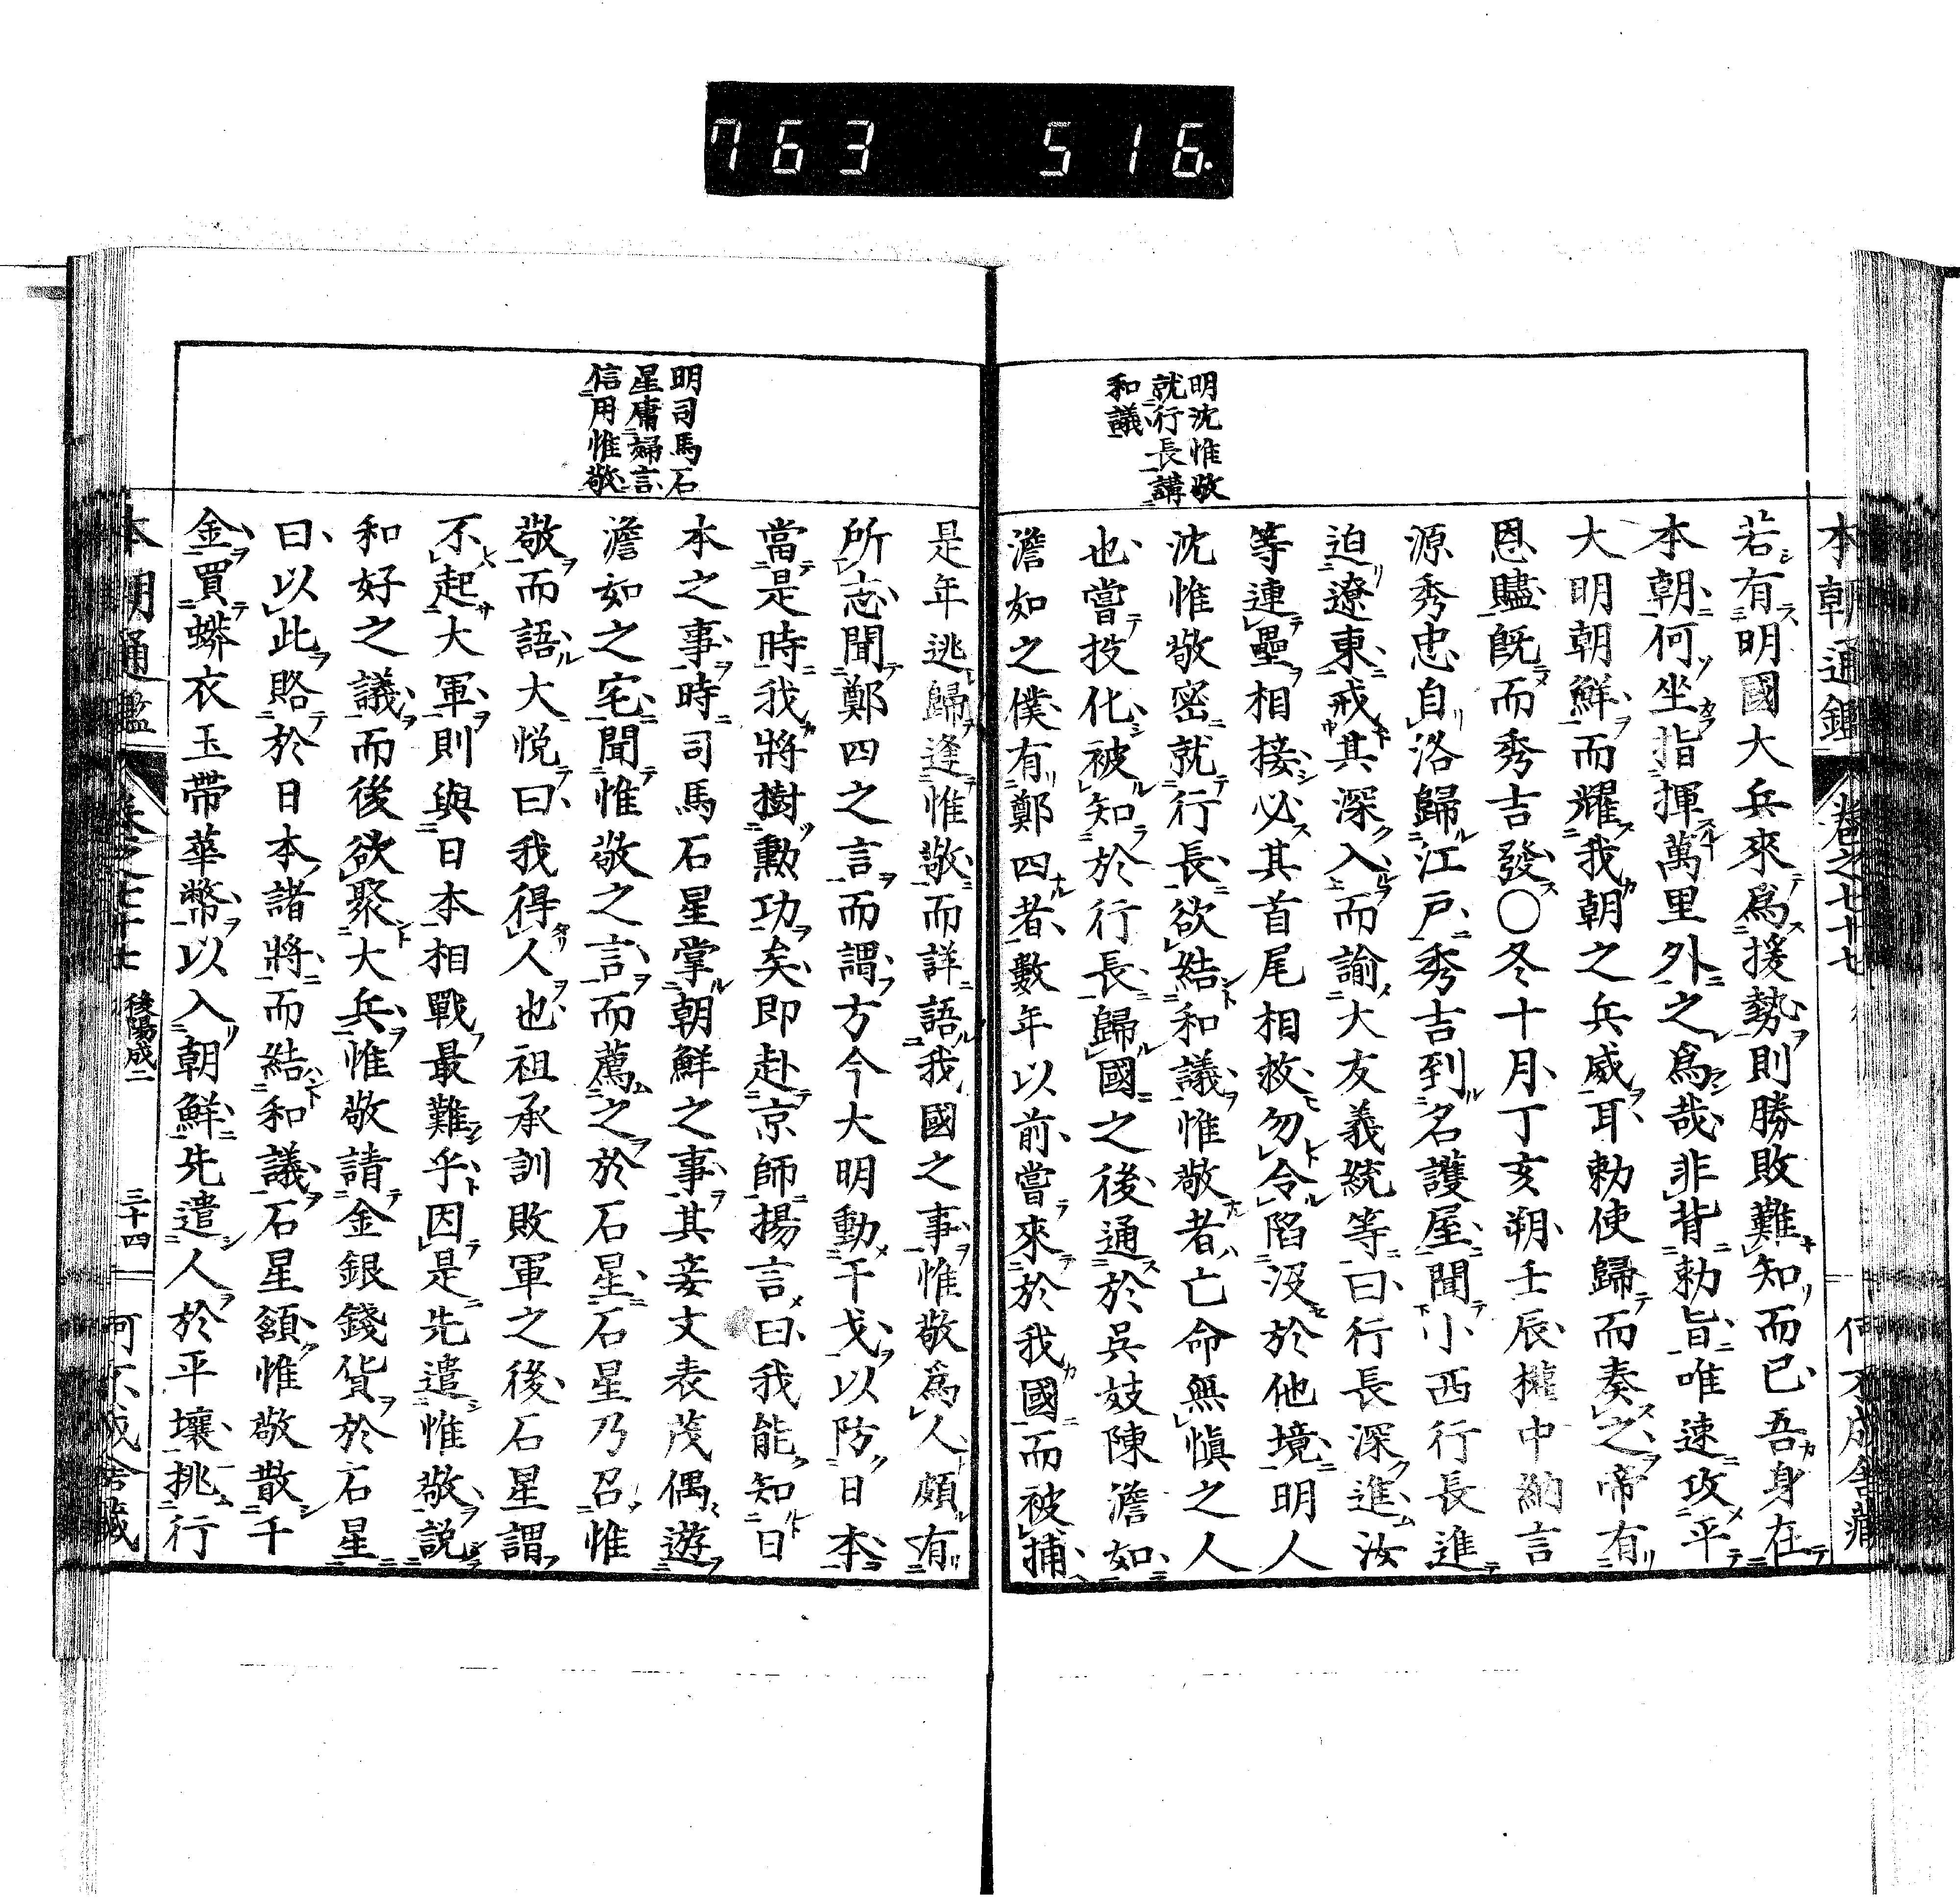 763 516.
本朝通鑑 卷之七十七
明沈惟敬
就行長講
和議
若有明國大兵來爲援勢則勝敗難知而已吾身在
本朝何坐指揮萬里外之爲哉非背勅旨唯速攻平
大明朝鮮而耀我朝之兵威耳勅使歸而奏之帝有
恩贐既而秀吉發〇冬十月丁亥朔壬辰權中納言
源秀忠自洛歸江戸秀吉到名護屋聞小西行長進
迫遼東戒其深入而諭大友義統等曰行長深進汝
等連壘相接必其首尾相救勿令陷沒於他境明人
沈惟敬密就行長欲結和議惟敬者亡命無愼之人
也嘗投化被知於行長歸國之後通於吳妓陳澹如
澹如之僕有鄭四者數年以前嘗來於我國而被捕
明司馬石
星庸婦言
信用惟敬
是年逃歸逢惟敬而詳語我國之事惟敬爲人頗有
所志聞鄭四之言而謂方今大明動干戈以防日本
當是時我將樹勲功矣即赴京師揚言曰我能知日
本之事時司馬石星掌朝鮮之事其妾父表茂偶遊
澹如之宅聞惟敬之言而薦之於石星石星乃召惟
敬而語大悦曰我得人也祖承訓敗軍之後石星謂
不起大軍則與日本相戰最難乎因是先遣惟敬説
和好之議而後欲聚大兵惟敬請金銀錢貨於石星
曰以此賂於日本諸將而結和議石星頷惟敬散千
金買蟒衣玉帶華幣以入朝鮮先遣人於平壤挑行
本朝通鑑 卷之七十七 後陽成二 三十四